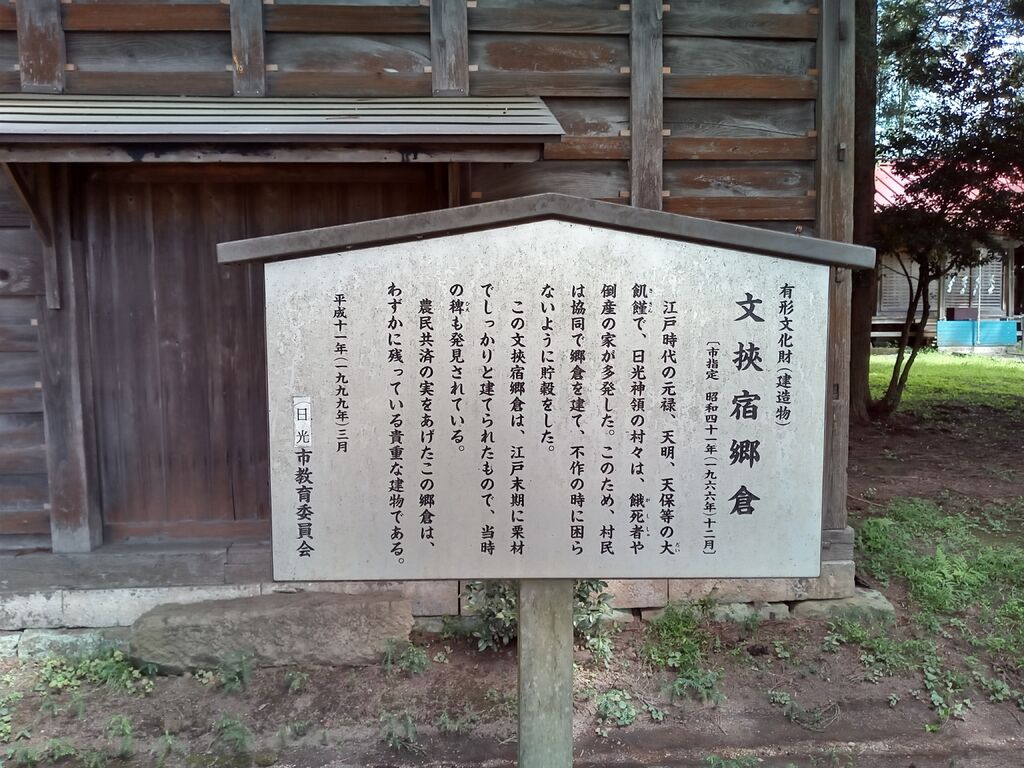 有形文化財(建造物)
文挾宿郷倉
〔市指定 昭和四十一年(一九六六年)十二月〕
江戸時代の元禄、天明、天保等の大
だい
飢饉で、日光神領の村々は、餓死者や
ききん
がししゃ
倒産の家が多発した。このため、村民
は協同で郷倉を建て、不作の時に困ら
ないように貯穀をした。
この文挾宿郷倉は、江戸末期に栗材
でしっかりと建てられたもので、当時
の稗も発見されている。
ひえ
農民共済の実をあげたこの郷倉は、
わずかに残っている貴重な建物である。
平成十一年(一九九九年)三月
日光市教育委員会